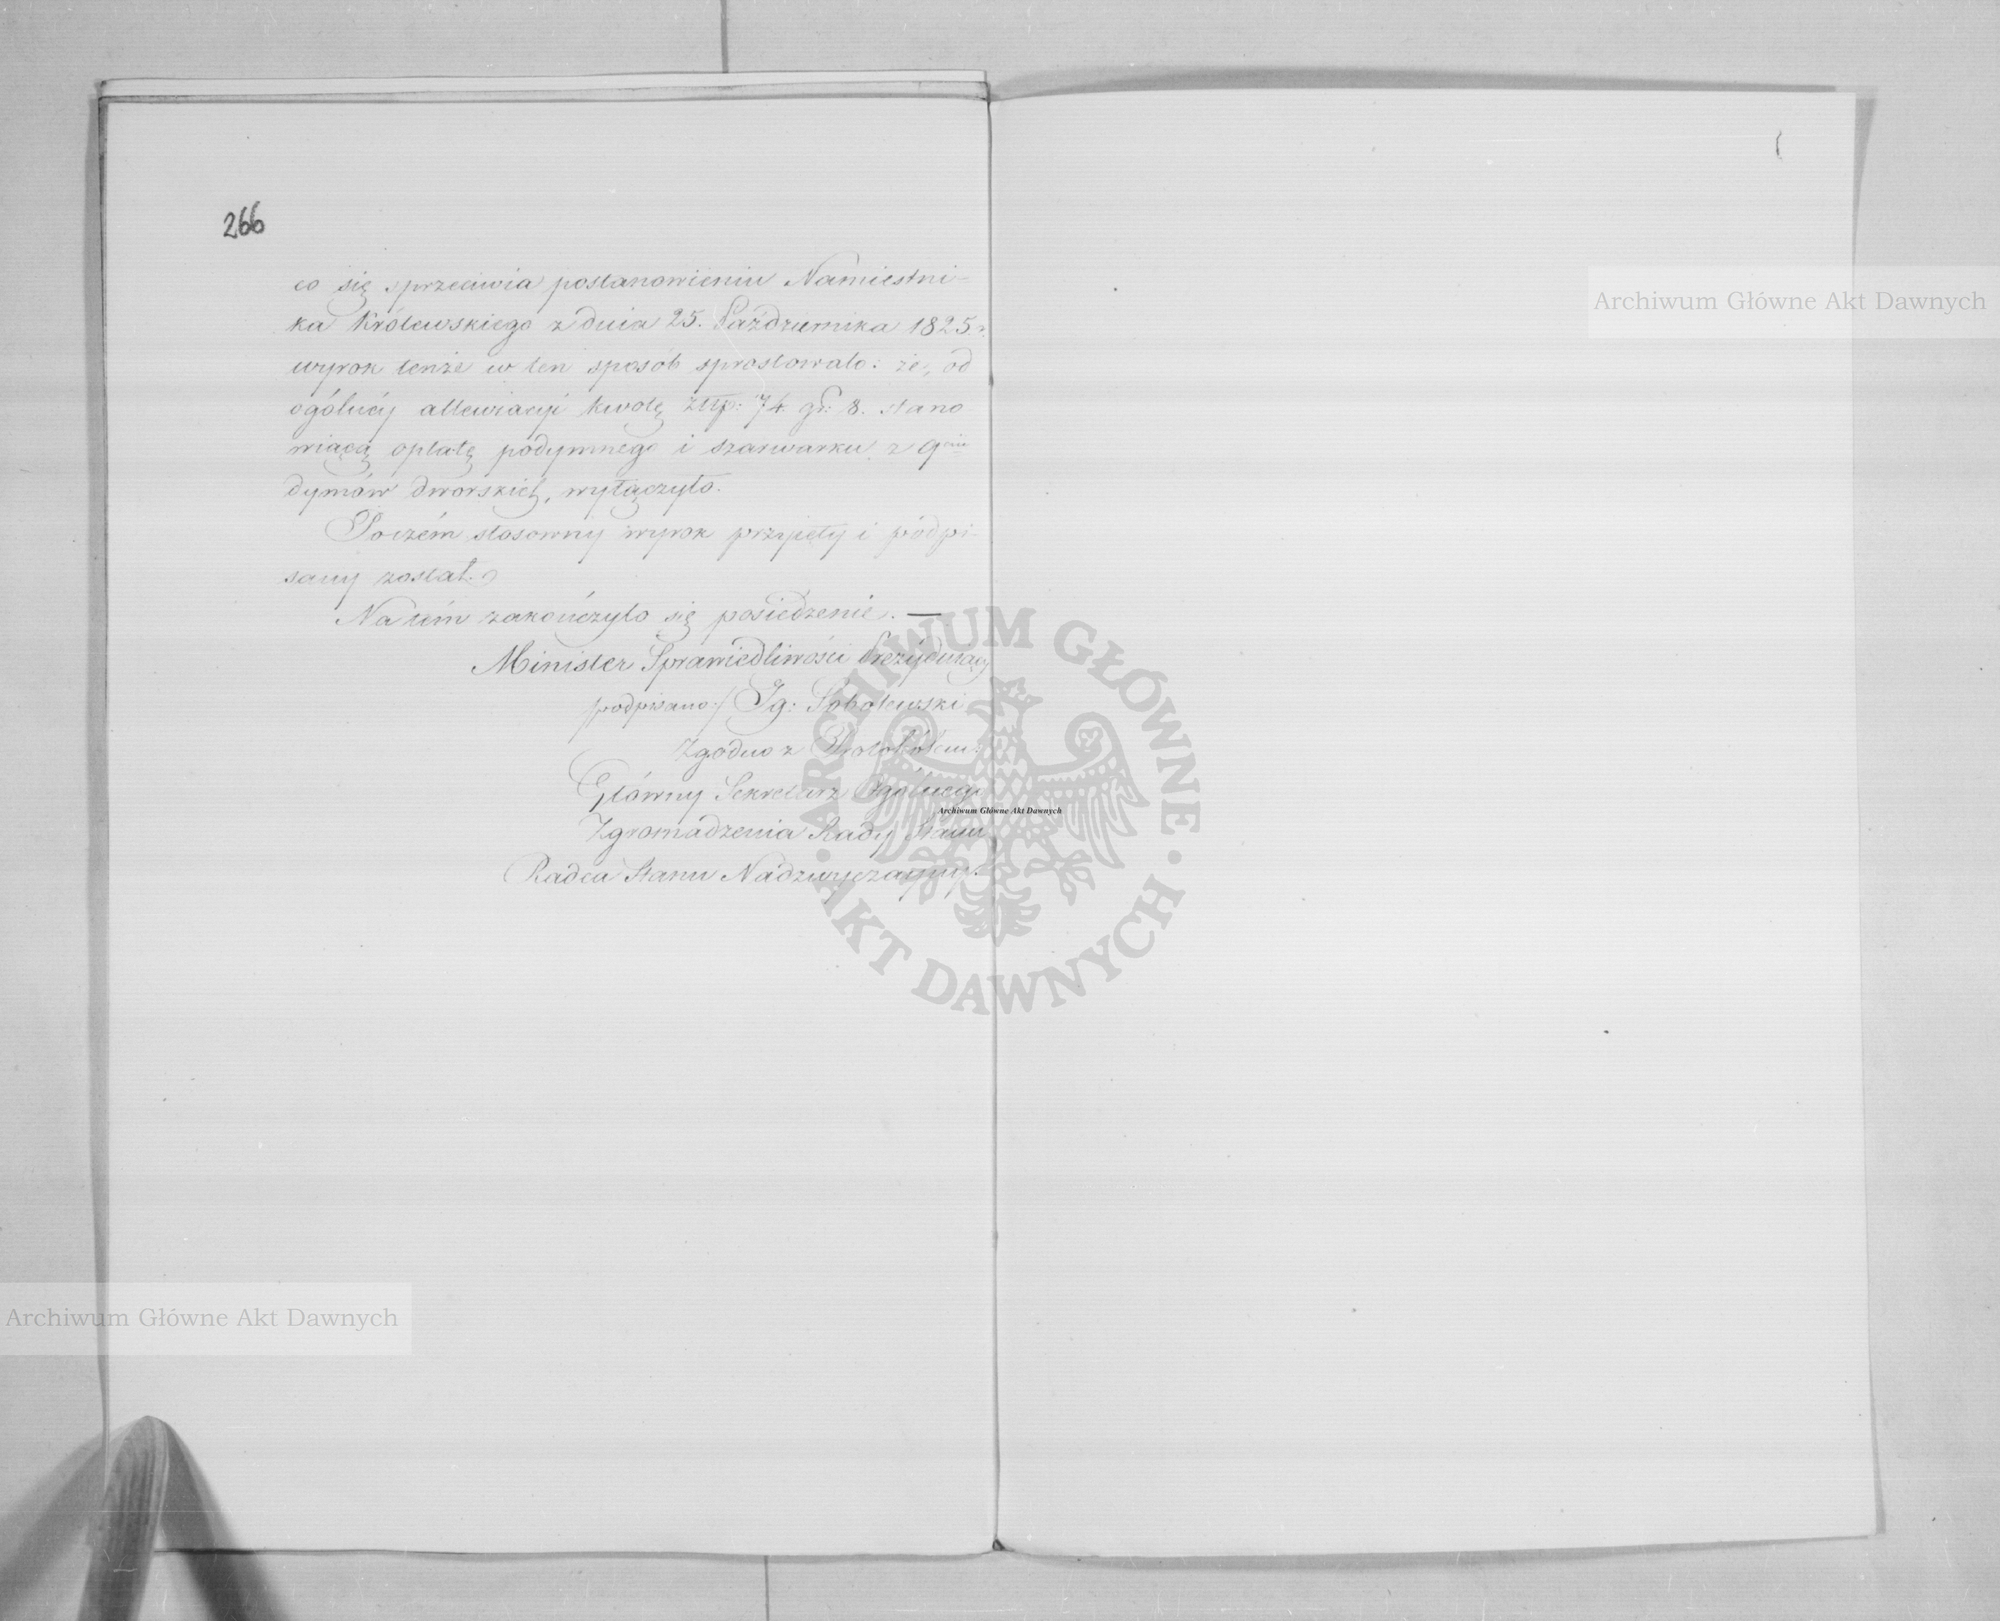 266
co się sprzeciwia postanowieniu Namiestni-
ka Królewskiego z dnia 25. Października 1825 r.
wyrok tenże w ten sposób sprostowało: że, od
ogólnéy allewiacyi kwotę złlp: 74 gr: 8. stano
wiącą opłatę podymnego i szarwarku z 9ciu
dymów dworskich, wyłączyło.
Poczém stosowny wyrok przyięty i podpi-
sany został.
Na tém zakończyło się posiedzenie. —
Minister Sprawiedliwości Prezyduiący
podpisano:/ Ig: Sobolewski
Zgodno z Protokółem:
Główny Sekretarz Ogólnego
Zgromadzenia Rady Stanu
Radca Stanu Nadzwyczayny.
Archiwum Główne Akt Dawnych
Archiwum Główne Akt Dawnych
Archiwum Główne Akt Dawnych
ARCHIWUM GŁÓWNE
· AKT DAWNYCH ·